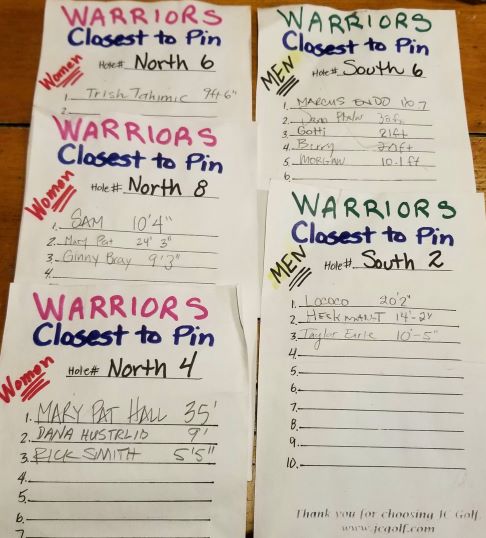 WARRIORS
Closest to Pin
Women
Hole# North 6
1. Trish 9ft 6"
2.
WARRIORS
Closest to Pin
Women
Hole# North 8
1. SAM 10'4"
2. Mary Pat 24' 3"
3. Ginny Bray 9'3"
4.
WARRIORS
Closest to Pin
Women
Hole# North 4
1. MARY PAT HALL 35'
2. DANA 9'
3. RICK SMITH 5'5"
4.
5.
6.
7.
WARRIORS
Closest to Pin
MEN
Hole# South 6
1. MARCUS
2. Dana
3. Gotti 21ft
4.
5. MORGAN 10.1 ft
6.
WARRIORS
Closest to Pin
MEN
Hole# South 2
1. Lococo 20'2"
2. 14'-2"
3. Taylor Earle 10'-5"
4.
5.
6.
7.
8.
9.
10.
Thank you for choosing JC Golf.
www.jcgolf.com